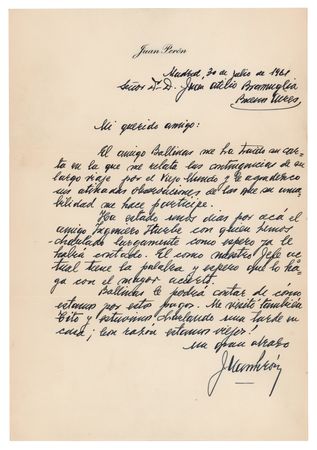 Juan Perón
Madrid, 30 de julio de 1961
Señor Dr. D. Juan Atilio Bramuglia
Buenos Aires.
Mi querido amigo:
El amigo Ballinas me ha traído su car-
ta en la que me relata las contingencias de su
largo viaje por el Viejo Mundo y le agradezco
sus atinadas observaciones de las que su ama-
bilidad me hace partícipe.
Ha estado unos días por acá el
amigo Ingeniero Iturbe con quien hemos
charlado largamente como espero ya le
habrá contado. El como nuestro Jefe ac-
tual tiene la palabra y espero que lo ha-
ga con el mayor acierto.
Ballinas le podrá contar de cómo
estamos por estos pagos. Me visitó también
Tito y estuvimos charlando una tarde en
casa; con razón estamos viejos!
Un gran abrazo